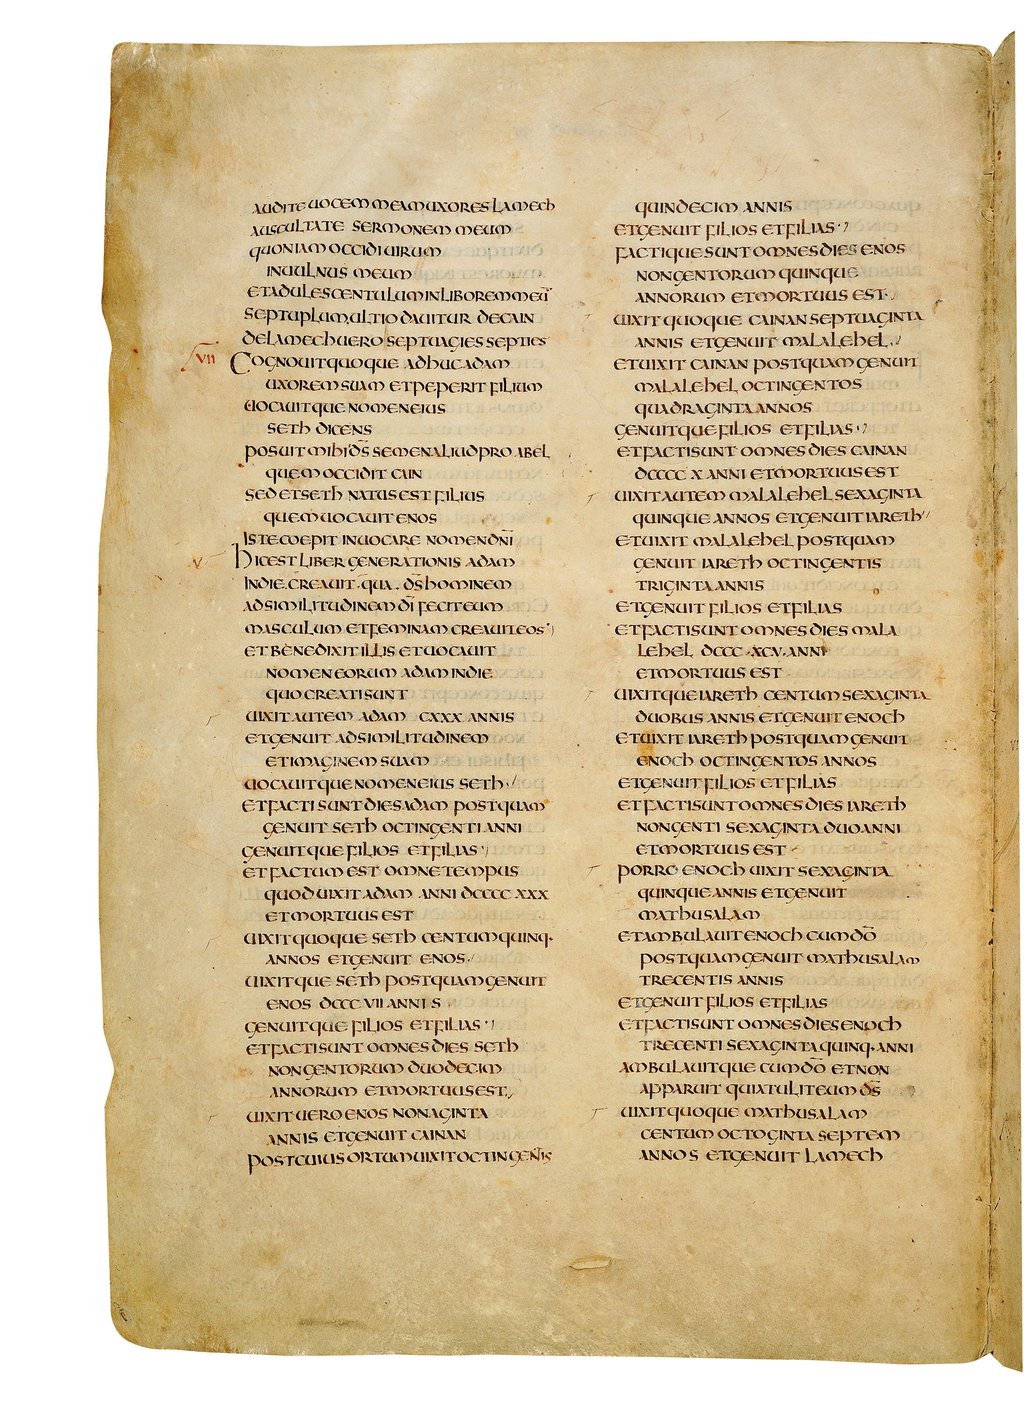 AUDITE UOCEM MEAM UXORES LAMECH
AUSCULTATE SERMONEM MEUM
QUONIAM OCCIDI UIRUM
IN UULNUS MEUM
ET ADULESCENTULUM IN LIBOREM MEŪ
SEPTUPLUM ULTIO DAUITUR DE CAIN
DE LAMECH UERO SEPTUAGIES SEPTIES
VII COGNOUIT QUOQUE ADHUC ADAM
UXOREM SUAM ET PEPERIT FILIUM
UOCAUITQUE NOMEN EIUS
SETH DICENS
POSUIT MIHI D̄S SEMEN ALIUD PRO ABEL
QUEM OCCIDIT CAIN
SED ET SETH NATUS EST FILIUS
QUEM UOCAUIT ENOS
ISTE COEPIT INUOCARE NOMEN DN̄I
V HIC EST LIBER GENERATIONIS ADAM
IN DIE CREAUIT QUA D̄S HOMINEM
AD SIMILITUDINEM D̄I FECIT EUM
MASCULUM ET FEMINAM CREAUIT EOS
ET BENEDIXIT ILLIS ET UOCAUIT
NOMEN EORUM ADAM IN DIE
QUO CREATI SUNT
UIXIT AUTEM ADAM CXXX ANNIS
ET GENUIT AD SIMILITUDINEM
ET IMAGINEM SUAM
UOCAUITQUE NOMEN EIUS SETH
ET FACTI SUNT DIES ADAM POSTQUAM
GENUIT SETH OCTINGENTI ANNI
GENUITQUE FILIOS ET FILIAS
ET FACTUM EST OMNE TEMPUS
QUOD UIXIT ADAM ANNI DCCCC XXX
ET MORTUUS EST
UIXIT QUOQUE SETH CENTUM QUINQ·
ANNOS ET GENUIT ENOS
UIXITQUE SETH POSTQUAM GENUIT
ENOS DCCC VII ANNIS
GENUITQUE FILIOS ET FILIAS
ET FACTI SUNT OMNES DIES SETH
NONGENTORUM DUODECIM
ANNORUM ET MORTUUS EST
UIXIT UERO ENOS NONAGINTA
ANNIS ET GENUIT CAINAN
POST CUIUS ORTUM UIXIT OCTINGEN̄IS
QUINDECIM ANNIS
ET GENUIT FILIOS ET FILIAS
FACTIQUE SUNT OMNES DIES ENOS
NONGENTORUM QUINQUE
ANNORUM ET MORTUUS EST
UIXIT QUOQUE CAINAN SEPTUAGINTA
ANNIS ET GENUIT MALALEHEL
ET UIXIT CAINAN POSTQUAM GENUIT
MALALEHEL OCTINGENTOS
QUADRAGINTA ANNOS
GENUITQUE FILIOS ET FILIAS
ET FACTI SUNT OMNES DIES CAINAN
DCCCC X ANNI ET MORTUUS EST
UIXIT AUTEM MALALEHEL SEXAGINTA
QUINQUE ANNOS ET GENUIT IARETH
ET UIXIT MALALEHEL POSTQUAM
GENUIT IARETH OCTINGENTIS
TRIGINTA ANNIS
ET GENUIT FILIOS ET FILIAS
ET FACTI SUNT OMNES DIES MALA
LEHEL DCCC·XCV·ANNI
ET MORTUUS EST
UIXITQUE IARETH CENTUM SEXAGINTA
DUOBUS ANNIS ET GENUIT ENOCH
ET UIXIT IARETH POSTQUAM GENUIT
ENOCH OCTINGENTOS ANNOS
ET GENUIT FILIOS ET FILIAS
ET FACTI SUNT OMNES DIES IARETH
NONGENTI SEXAGINTA DUO ANNI
ET MORTUUS EST
PORRO ENOCH UIXIT SEXAGINTA
QUINQUE ANNIS ET GENUIT
MATHUSALAM
ET AMBULAUIT ENOCH CUM D̄O
POSTQUAM GENUIT MATHUSALAM
TRECENTIS ANNIS
ET GENUIT FILIOS ET FILIAS
ET FACTI SUNT OMNES DIES ENOCH
TRECENTI SEXAGINTA QUINQ·ANNI
AMBULAUITQUE CUM D̄O ET NON
APPARUIT QUIA TULIT EUM D̄S
UIXIT QUOQUE MATHUSALAM
CENTUM OCTOGINTA SEPTEM
ANNOS ET GENUIT LAMECH